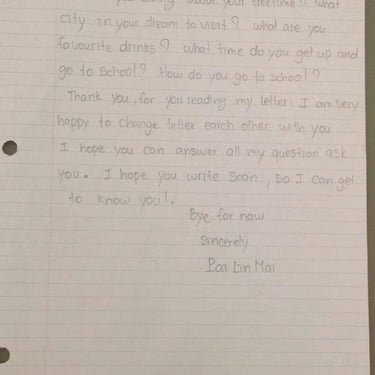 about your freetime? What
city in your dream to visit? what are you
favourite drinks? what time do you get up and
go to school? How do you go to school?
Thank you, for you reading my letter. I am very
happy to change letter earch other with you
I hope you can answer all my question ask
you. I hope you write soon, so I can get
to know you!.
Bye for now
Sincerely
Lin Mai